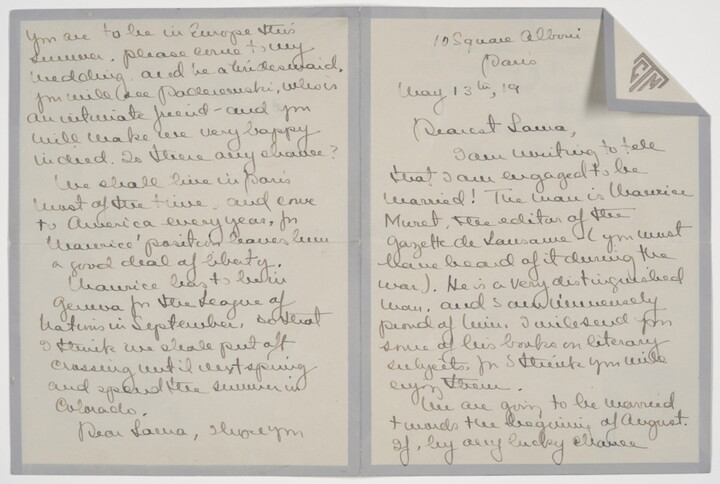 10 Square Alboni
Paris
May 13th, 19
Dearest Lama,
I am writing to tell
that I am engaged to be
married! The man is Maurice
Muret, the editor of the
Gazette de Lausanne - (you must
have heard of it during the
war). He is a very distinguished
man, and I am immensely
proud of him. I will send you
some of his books on literary
subjects, for I think you will
enjoy them.
We are going to be married
towards the beginning of August.
If, by any lucky chance
you are to be in Europe this
summer, please come to my
wedding, and be a bridesmaid.
You will see Paderewski, who is
an intimate friend - and you
will make me very happy
indeed. Is there any chance?
We shall live in Paris
most of the time, and come
to America every year, for
Maurice' position leaves him
a good deal of liberty.
Maurice has to be in
Geneva for the League of
Nations in September, so that
I think we shall put off
crossing until next spring
and spend the summer in
Colorado.
Dear Lama, I hope you